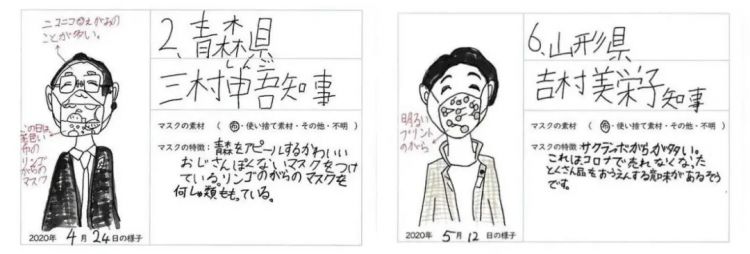 ニコニコのえがおの
ことが多い。
この日は
黄色い
布の
リンゴ
がらの
マスク
2020年 4月 24日の様子
2.青森県
しんご
三村申吾知事
マスクの素材 ( 布・使い捨て素材・その他・不明 )
マスクの特徴: 青森をアピールするかわいい
おじさんぽくないマスクをつけ
ている。リンゴのがらのマスクを
何しゅ類ももっている。
明るい
プリント
のがら
2020年 5月 12日の様子
6.山形県
吉村美栄子知事
マスクの素材 ( 布・使い捨て素材・その他・不明 )
マスクの特徴: サクランボがらが多い。
これはコロナで売れなくなった
とくさん品をおうえんする意味があるそう
です。